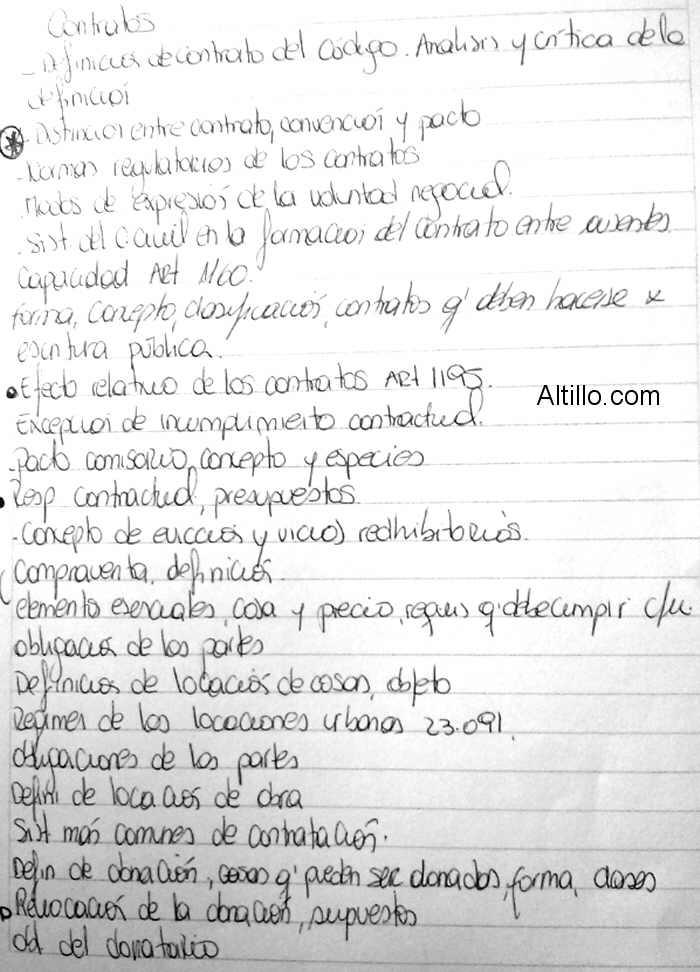 Contratos
- Definición de contrato del Código. Analisis y crítica de la
definición
* - Distincion entre contrato, convención y pacto
- Normas regulatorios de los contratos
. Modos de expresión de la voluntad negocial.
. Sist del C. Civil en la formación del contrato entre ausentes
Capacidad Art 1160.
forma, concepto, clasificación, contratos q' deben hacerse x
escritura pública.
• Efecto relativo de los contratos ART 1195.
Altillo.com
Excepcion de incumplimiento contractual.
- Pacto comisorio, concepto y especies
• Resp contractual, presupuestos
- Concepto de evicción y vicios redhibitorios.
Compraventa, definición.
elemento esenciales, cosa y precio, requis q' debe cumplir c/u
obligación de las partes
Definición de locación de cosas, objeto
Regimen de las locaciones urbanas 23.091.
obligaciones de las partes
Defini de locación de obra
Sist mas comunes de contratación.
Defin de donación, cosas q' pueden ser donados, forma, clases
Revocación de la donación, supuestos
obl del donatario